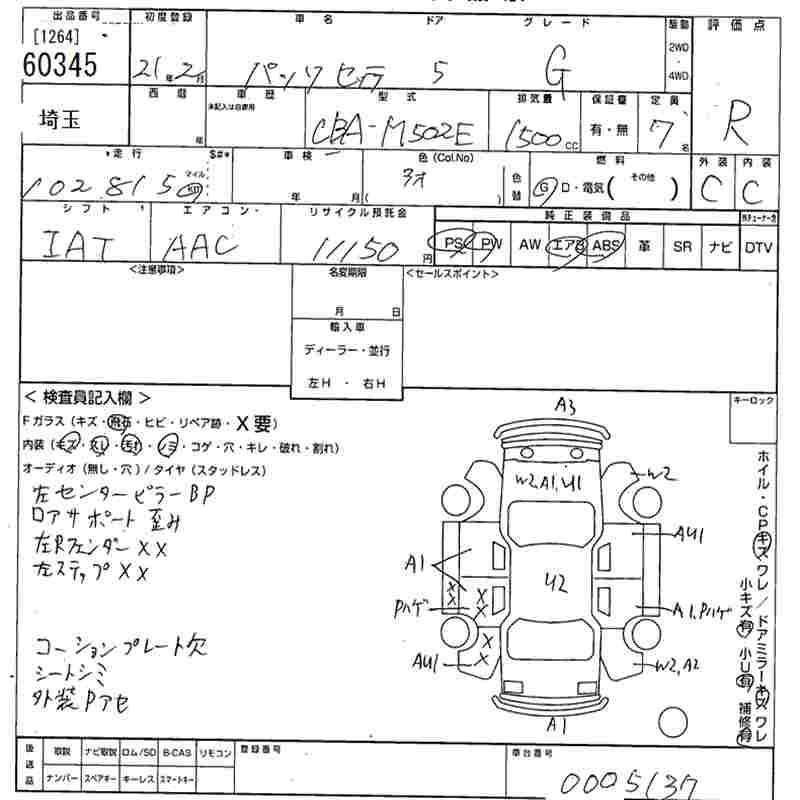 出品番号 初度登録 車名 ドア グレード 駆動 評価点
[1264]
60345 21年2月 パッソセッテ 5 G 2WD 4WD R
埼玉 西暦 年 車歴 未記入は自家用 型式 CBA-M502E 排気量 1500cc 保証書 有・無 定員 7名
*走行 $#* 車検 色(Col.No) 色替 燃料 外装 内装
102815 マイル km 年 月 ( ) G D・電気( その他 ) C C
シフト エアコン・ リサイクル預託金 純正装備品
IAT AAC 11150円 PS PW AW エアB ABS 革 SR ナビ DTV
<注意事項> 名変期限 <セールスポイント>
月 日
輸入車
ディーラー・並行
左H・右H
<検査員記入欄> キーロック
Fガラス(キズ・飛石・ヒビ・リペア跡・X要)
内装(キズ・スレ・汚れ・シミ・コゲ・穴・キレ・破れ・割れ)
オーディオ(無し・穴)/タイヤ(スタッドレス)
左センターピラーBP
ロアサポート歪み
左Rフェンダー××
左ステップ××
コーションプレート欠
シートシミ
外装Pアセ
A3
W2,A1,U1 W2
A1 AU1
U2
Pハゲ A1,Pハゲ
AU1 W2,A2
A1
ホイル・CPキズワレ/ドアミラーキズワレ
小キズ有 小U有 補修有
後送品 取説 ナビ取説 ロム/SD B-CAS リモコン 登録番号 車台番号
ナンバー スペアキー キーレス スマートキー 0005137